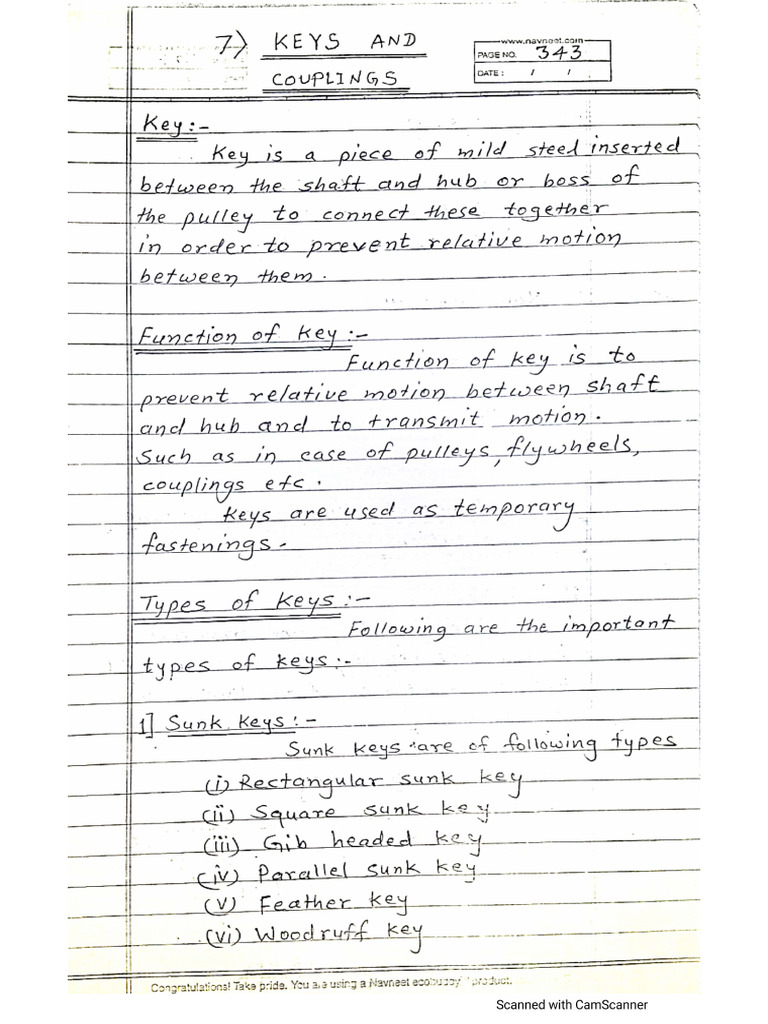 7) KEYS AND
COUPLINGS
www.navneet.com
PAGE NO. 343
DATE: / /
Key:-
Key is a piece of mild steel inserted
between the shaft and hub or boss of
the pulley to connect these together
in order to prevent relative motion
between them.
Function of Key:-
Function of key is to
prevent relative motion between shaft
and hub and to transmit motion.
Such as in case of pulleys, flywheels,
couplings etc.
Keys are used as temporary
fastenings.
Types of Keys:-
Following are the important
types of keys:-
1] Sunk Keys:-
Sunk keys are of following types
(i) Rectangular sunk key
(ii) Square sunk key
(iii) Gib headed key
(iv) Parallel sunk key
(v) Feather key
(vi) Woodruff key
Congratulations! Take pride. You are using a Navneet ecobuddy product.
Scanned with CamScanner